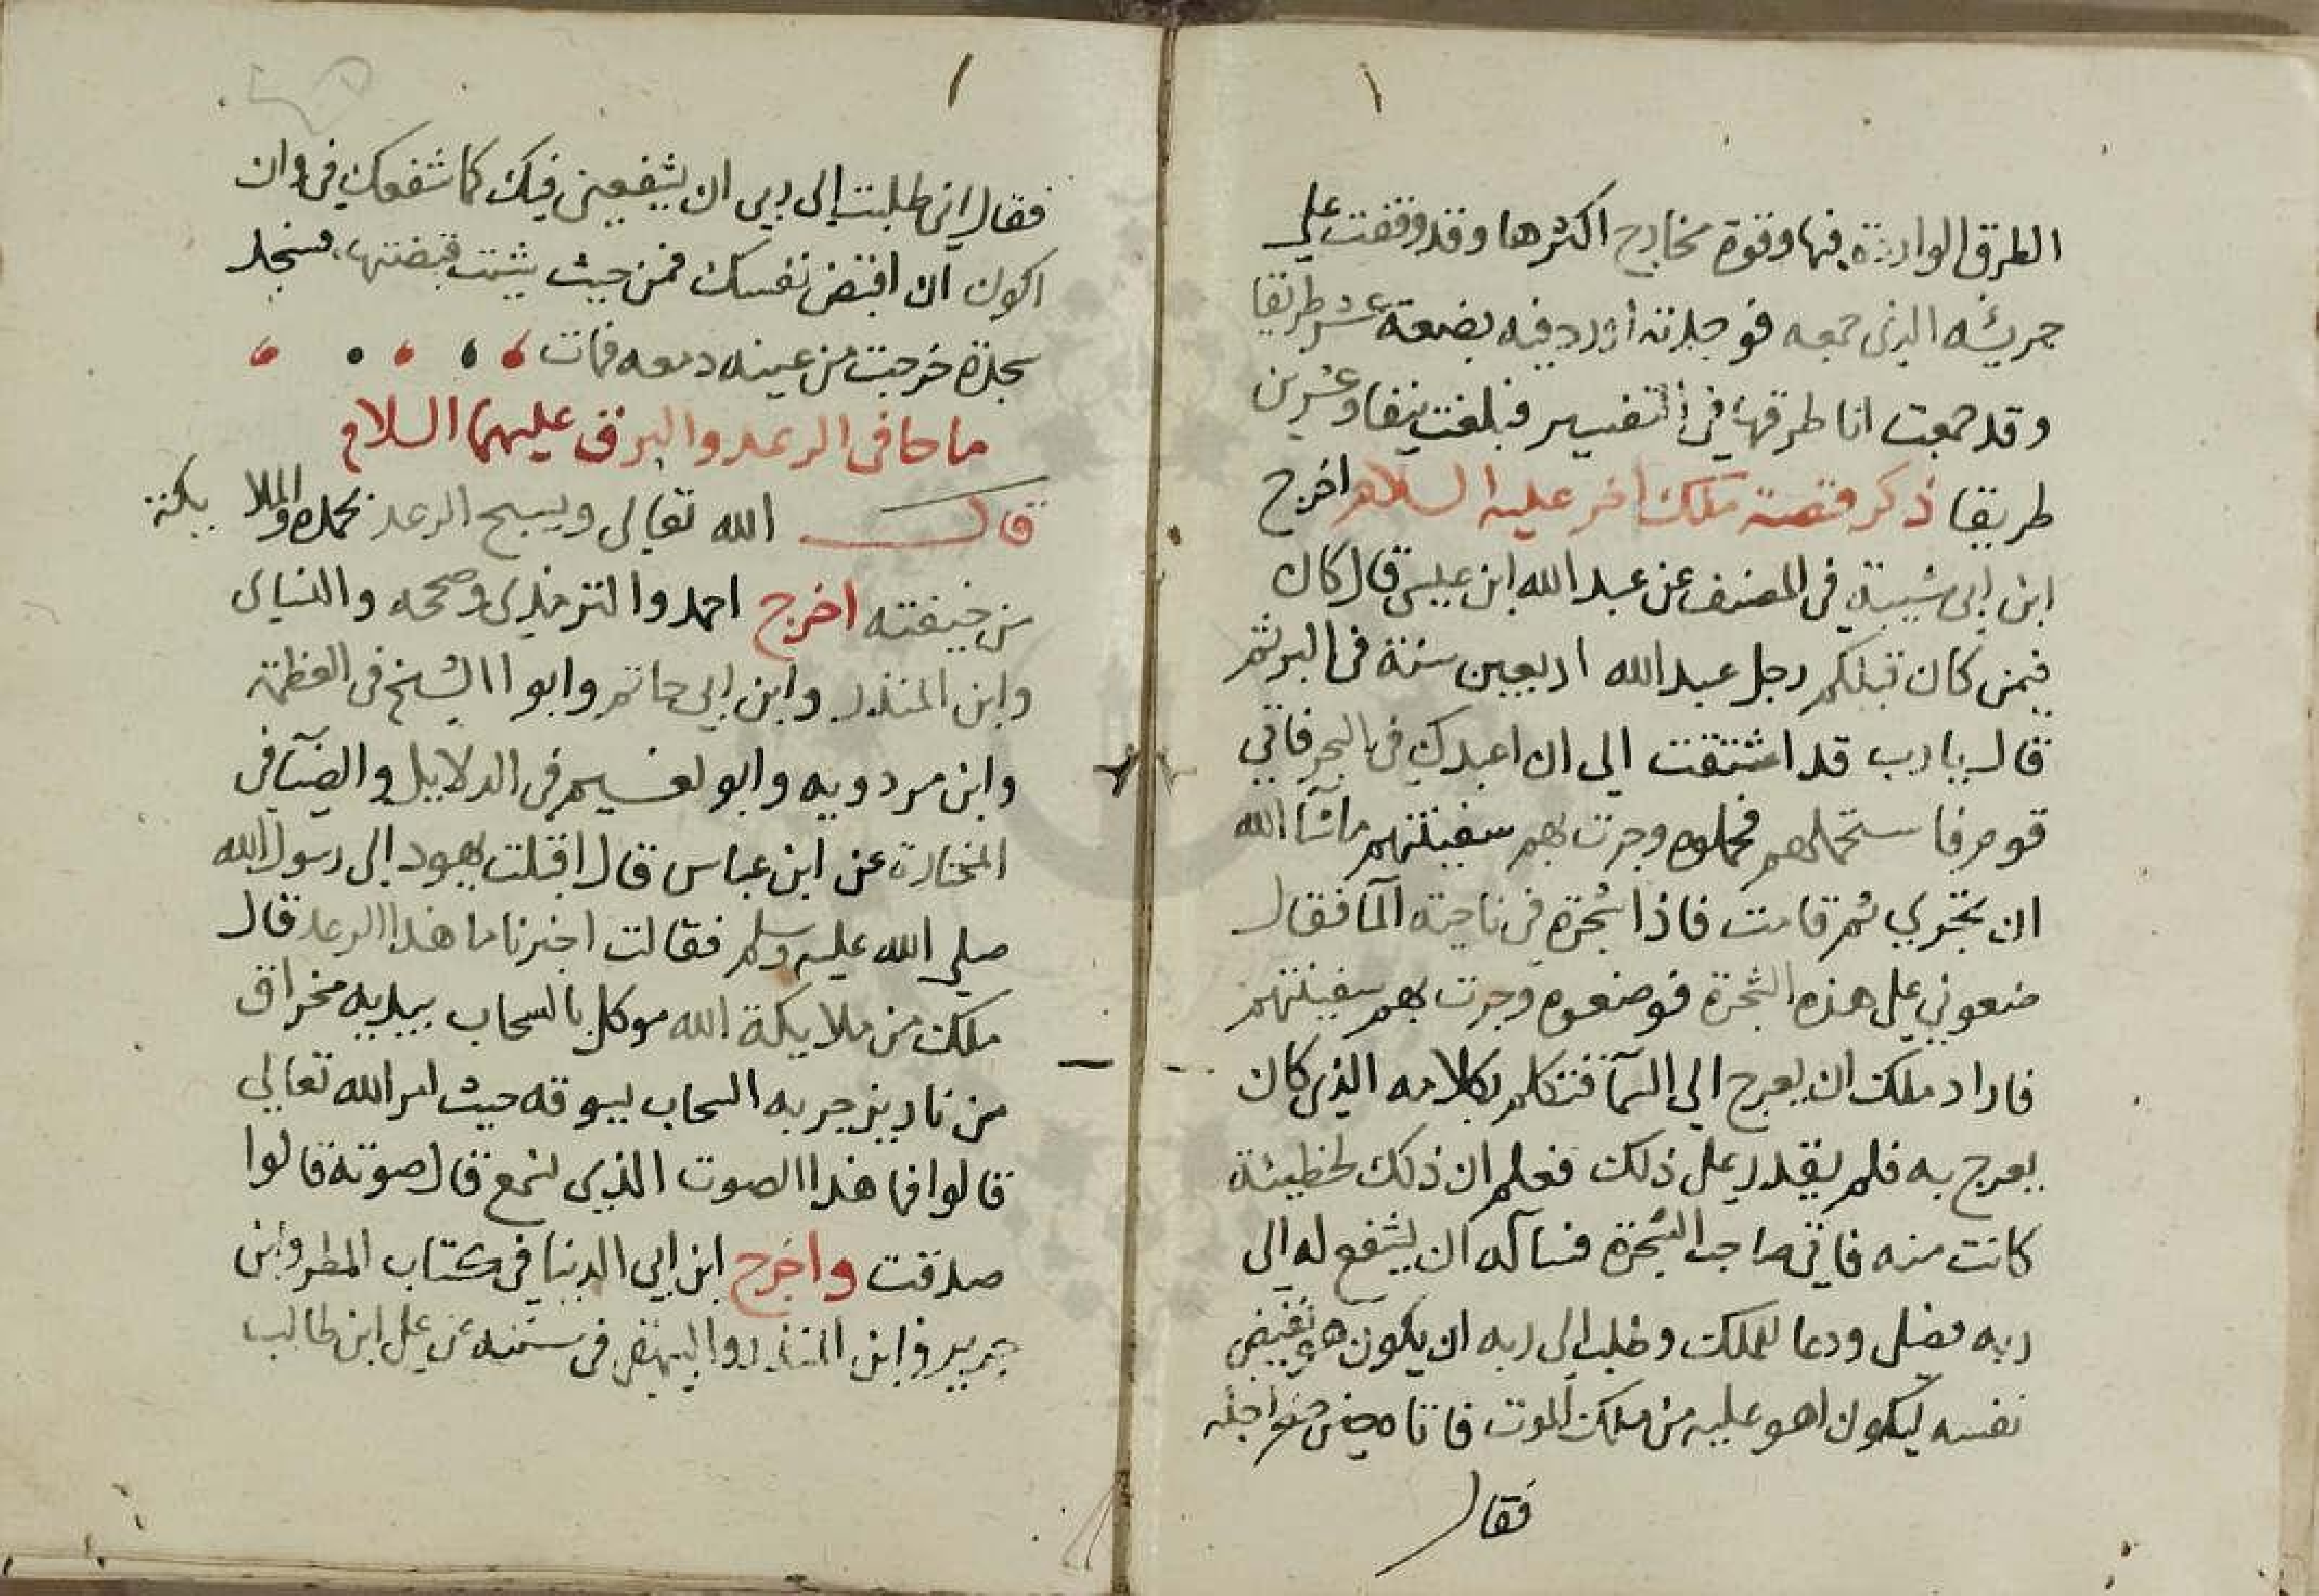 الطرق الواردة فيها وقوة مخارج اكثرها وقد وقفت على
جريئه الذى جمعه فوجدته اورد فيه بضعة عشر طريقا
وقد جمعت انا طرقها في التفسير فبلغت نيفا وعشرين
طريقا ذكر قصة ملك اخر عليه السلام اخرج
ابن ابى شيبة فى المصنف عن عبد الله ابن عيسى قال كان
فيمن كان قبلكم رجل عبد الله اربعين سنة فى البر ثم
قال يا رب قد اشتقت الى ان اعبدك فى البحر فاتي
قوم فاستحملهم فحملوه وجرت بهم سفينتهم ماشآ الله
ان تجري ثم قامت فاذا شجرة فى ناحية المآ فقال
ضعوني على هذه الشجرة فوضعوه وجرت بهم سفينتهم
فاراد ملك ان يعرج الى السمآ فتكلم بكلامه الذى كان
يعرج به فلم يقدر على ذلك فعلم ان ذلك لخطيئة
كانت منه فاتي صاحب الشجرة فسأله ان يشفع له الى
ربه فصلى ودعا للملك وطلب الى ربه ان يكون هو يقبض
نفسه ليكون اهو عليه من ملك الموت فاتاه حين حضر اجله
فقال
فقال اني طلبت إلى ربى ان يشفعني فيك كما شفعك في وان
اكون ان اقبض نفسك فمن حيث شئت قبضتها فسجد
سجدة خرجت من عينه دمعه فمات
ما جا فى الرعد والبرق عليهما السلام
قال الله تعالى ويسبح الرعد بحمده والملا يكة
من خيفته اخرج احمد والترمذى وصححه والنساى
وابن المنذر وابن ابي حاتم وابوا الشيخ فى العظمة
وابن مردويه وابو لغسيم فى الدلايل والضيآ فى
المختارة عن ابن عباس قال اقبلت يهود الى رسول الله
صلى الله عليه وسلم فقالت اخبرنا ما هذا الرعد قال
ملك من ملايكة الله موكل بالسحاب بيديه مخراق
من نار يزجر به السحاب يسوقه حيث امر الله تعالي
قالوا فما هذا الصوت الذي نسمع قال صوته قالوا
صدقت واخرج ابن ابي الدنيا في كتاب المطر وابن
جرير وابن المنذر والبيهقى فى سننه عن على ابن طالب